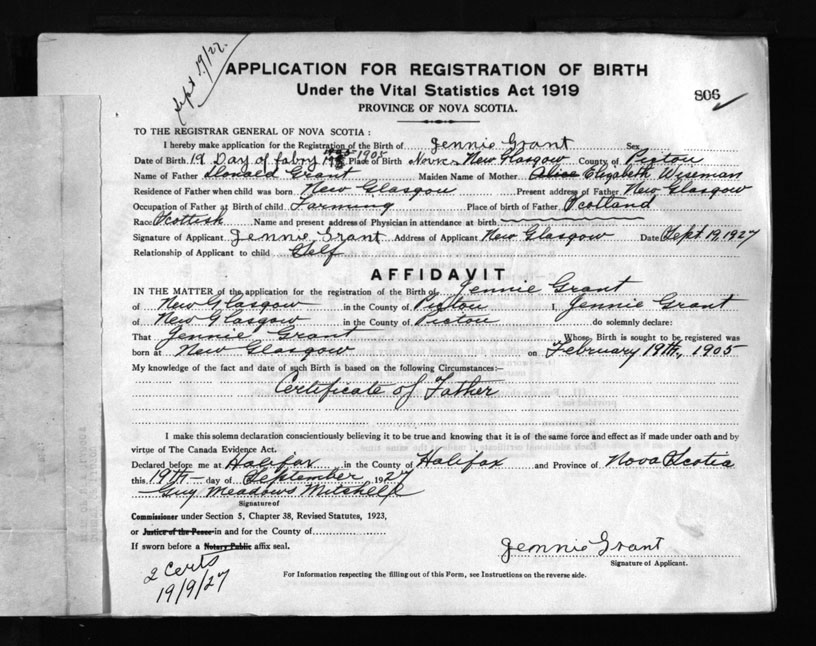 Sept 19/27.
APPLICATION FOR REGISTRATION OF BIRTH
Under the Vital Statistics Act 1919
806
PROVINCE OF NOVA SCOTIA.
TO THE REGISTRAR GENERAL OF NOVA SCOTIA :
I hereby make application for the Registration of the Birth of Jennie Grant Sex
Date of Birth 19 Day of fabry 1905 Place of Birth New Glasgow County of Pictou
Name of Father Donald Grant Maiden Name of Mother Alice Elizabeth Wiseman
Residence of Father when child was born New Glasgow Present address of Father New Glasgow
Occupation of Father at Birth of child Farming Place of birth of Father Scotland
Race Scottish Name and present address of Physician in attendance at birth
Signature of Applicant Jennie Grant Address of Applicant New Glasgow Date Sept 19, 1927
Relationship of Applicant to child Self
AFFIDAVIT
IN THE MATTER of the application for the registration of the Birth of Jennie Grant
of New Glasgow in the County of Pictou I, Jennie Grant
of New Glasgow in the County of Pictou do solemnly declare:
That Jennie Grant Whose Birth is sought to be registered was
born at New Glasgow on February 19th, 1905
My knowledge of the fact and date of such Birth is based on the following Circumstances:—
Certificate of Father
I make this solemn declaration conscientiously believing it to be true and knowing that it is of the same force and effect as if made under oath and by
virtue of The Canada Evidence Act.
Declared before me at Halifax in the County of Halifax and Province of Nova Scotia
this 19th day of September 1927
Guy Meadows Mitchell
Signature of
Commissioner under Section 5, Chapter 38, Revised Statutes, 1923,
or Justice of the Peace in and for the County of
If sworn before a Notary Public affix seal.
Jennie Grant
Signature of Applicant.
2 Certs
19/9/27
For Information respecting the filling out of this Form, see Instructions on the reverse side.